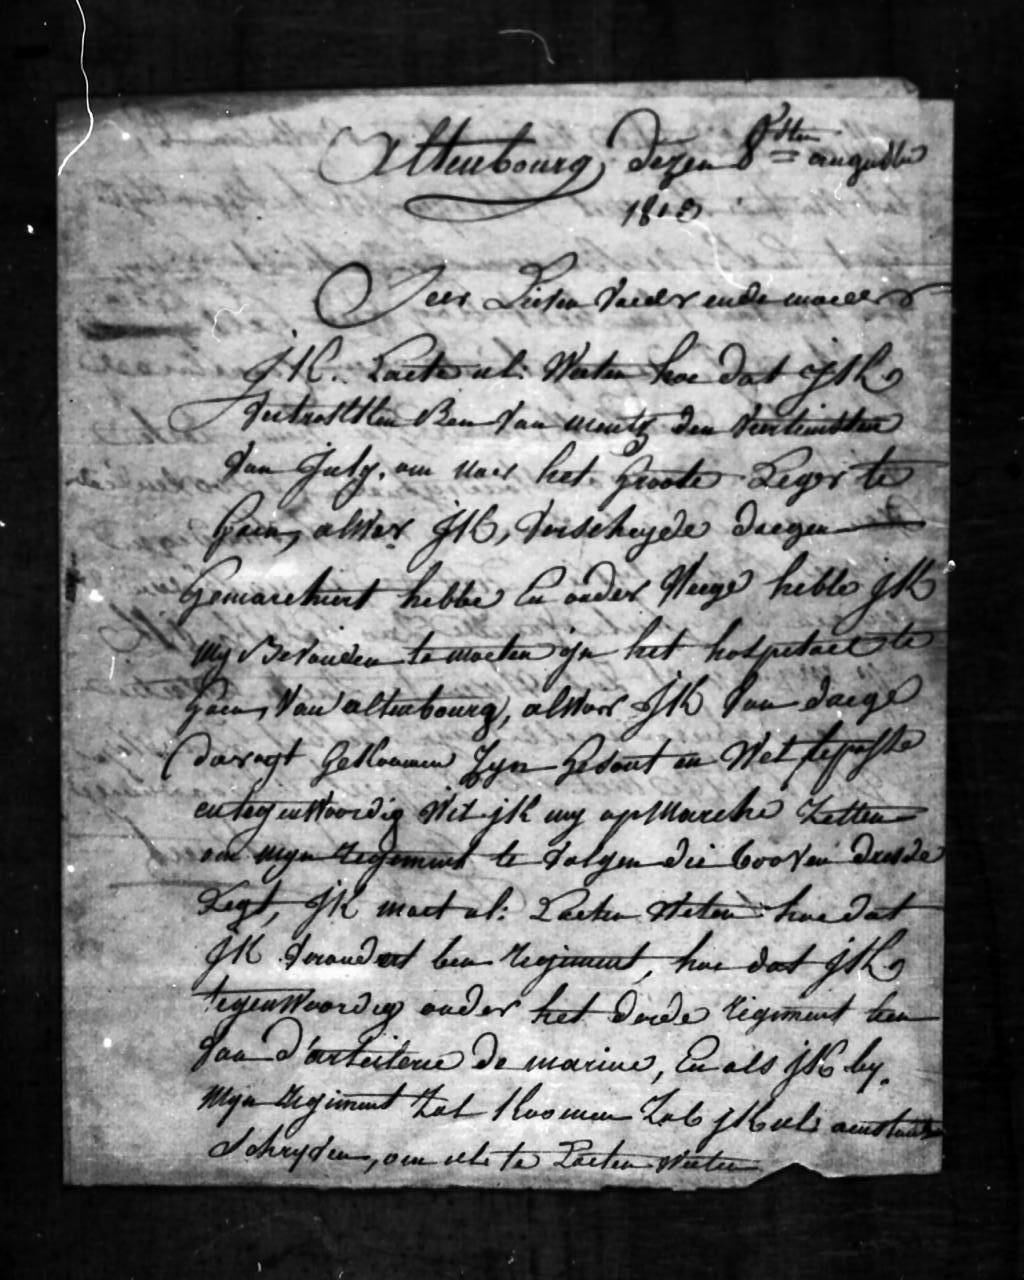 Altenbourg, dezen 8sten augustus
1813
Seer Lieven Vaeder ende moeder
JK. Laete ul: Weeten hoe dat JK
Vertrokken Ben Van mentz den Veertiensten
Van July, om naer het Groote Leger te
Gaen, alwaer JK, Verscheyde daegen
Gemarcheert hebbe En onder Weege hebbe JK
my Bevonden te moeten in het hospetael te
Gaen, Van altenbourg, alwaer JK Van daege
uyt Gekoomen Zyn Gesont en Wel
en tegenwoordig Wil jk my op Marche Zetten
om myn Regiment te Volgen die booven dresde
Legt, JK moet ul: Laeten Weten hoe dat
JK Verandert ben Regiment, hoe dat JK
tegenwoordig onder het derde Regiment ben
Van d'arteilerie de marine, En als JK by
Myn Regiment Zal Koomen Zal jK ul:
Schryven, om ul: te Laeten Weeten